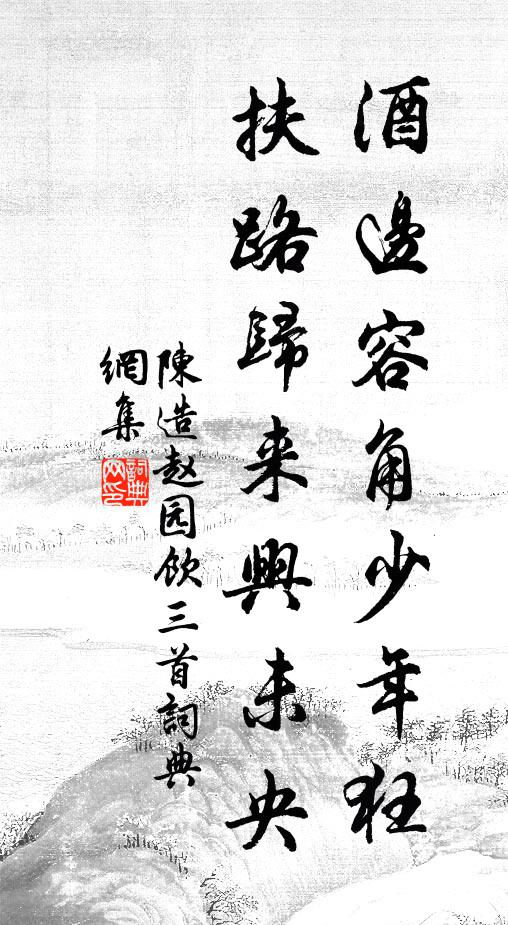 酒邊容角少年狂
扶路歸来興未央
陳造赵园飲三首詞典
網集
詞典
网印